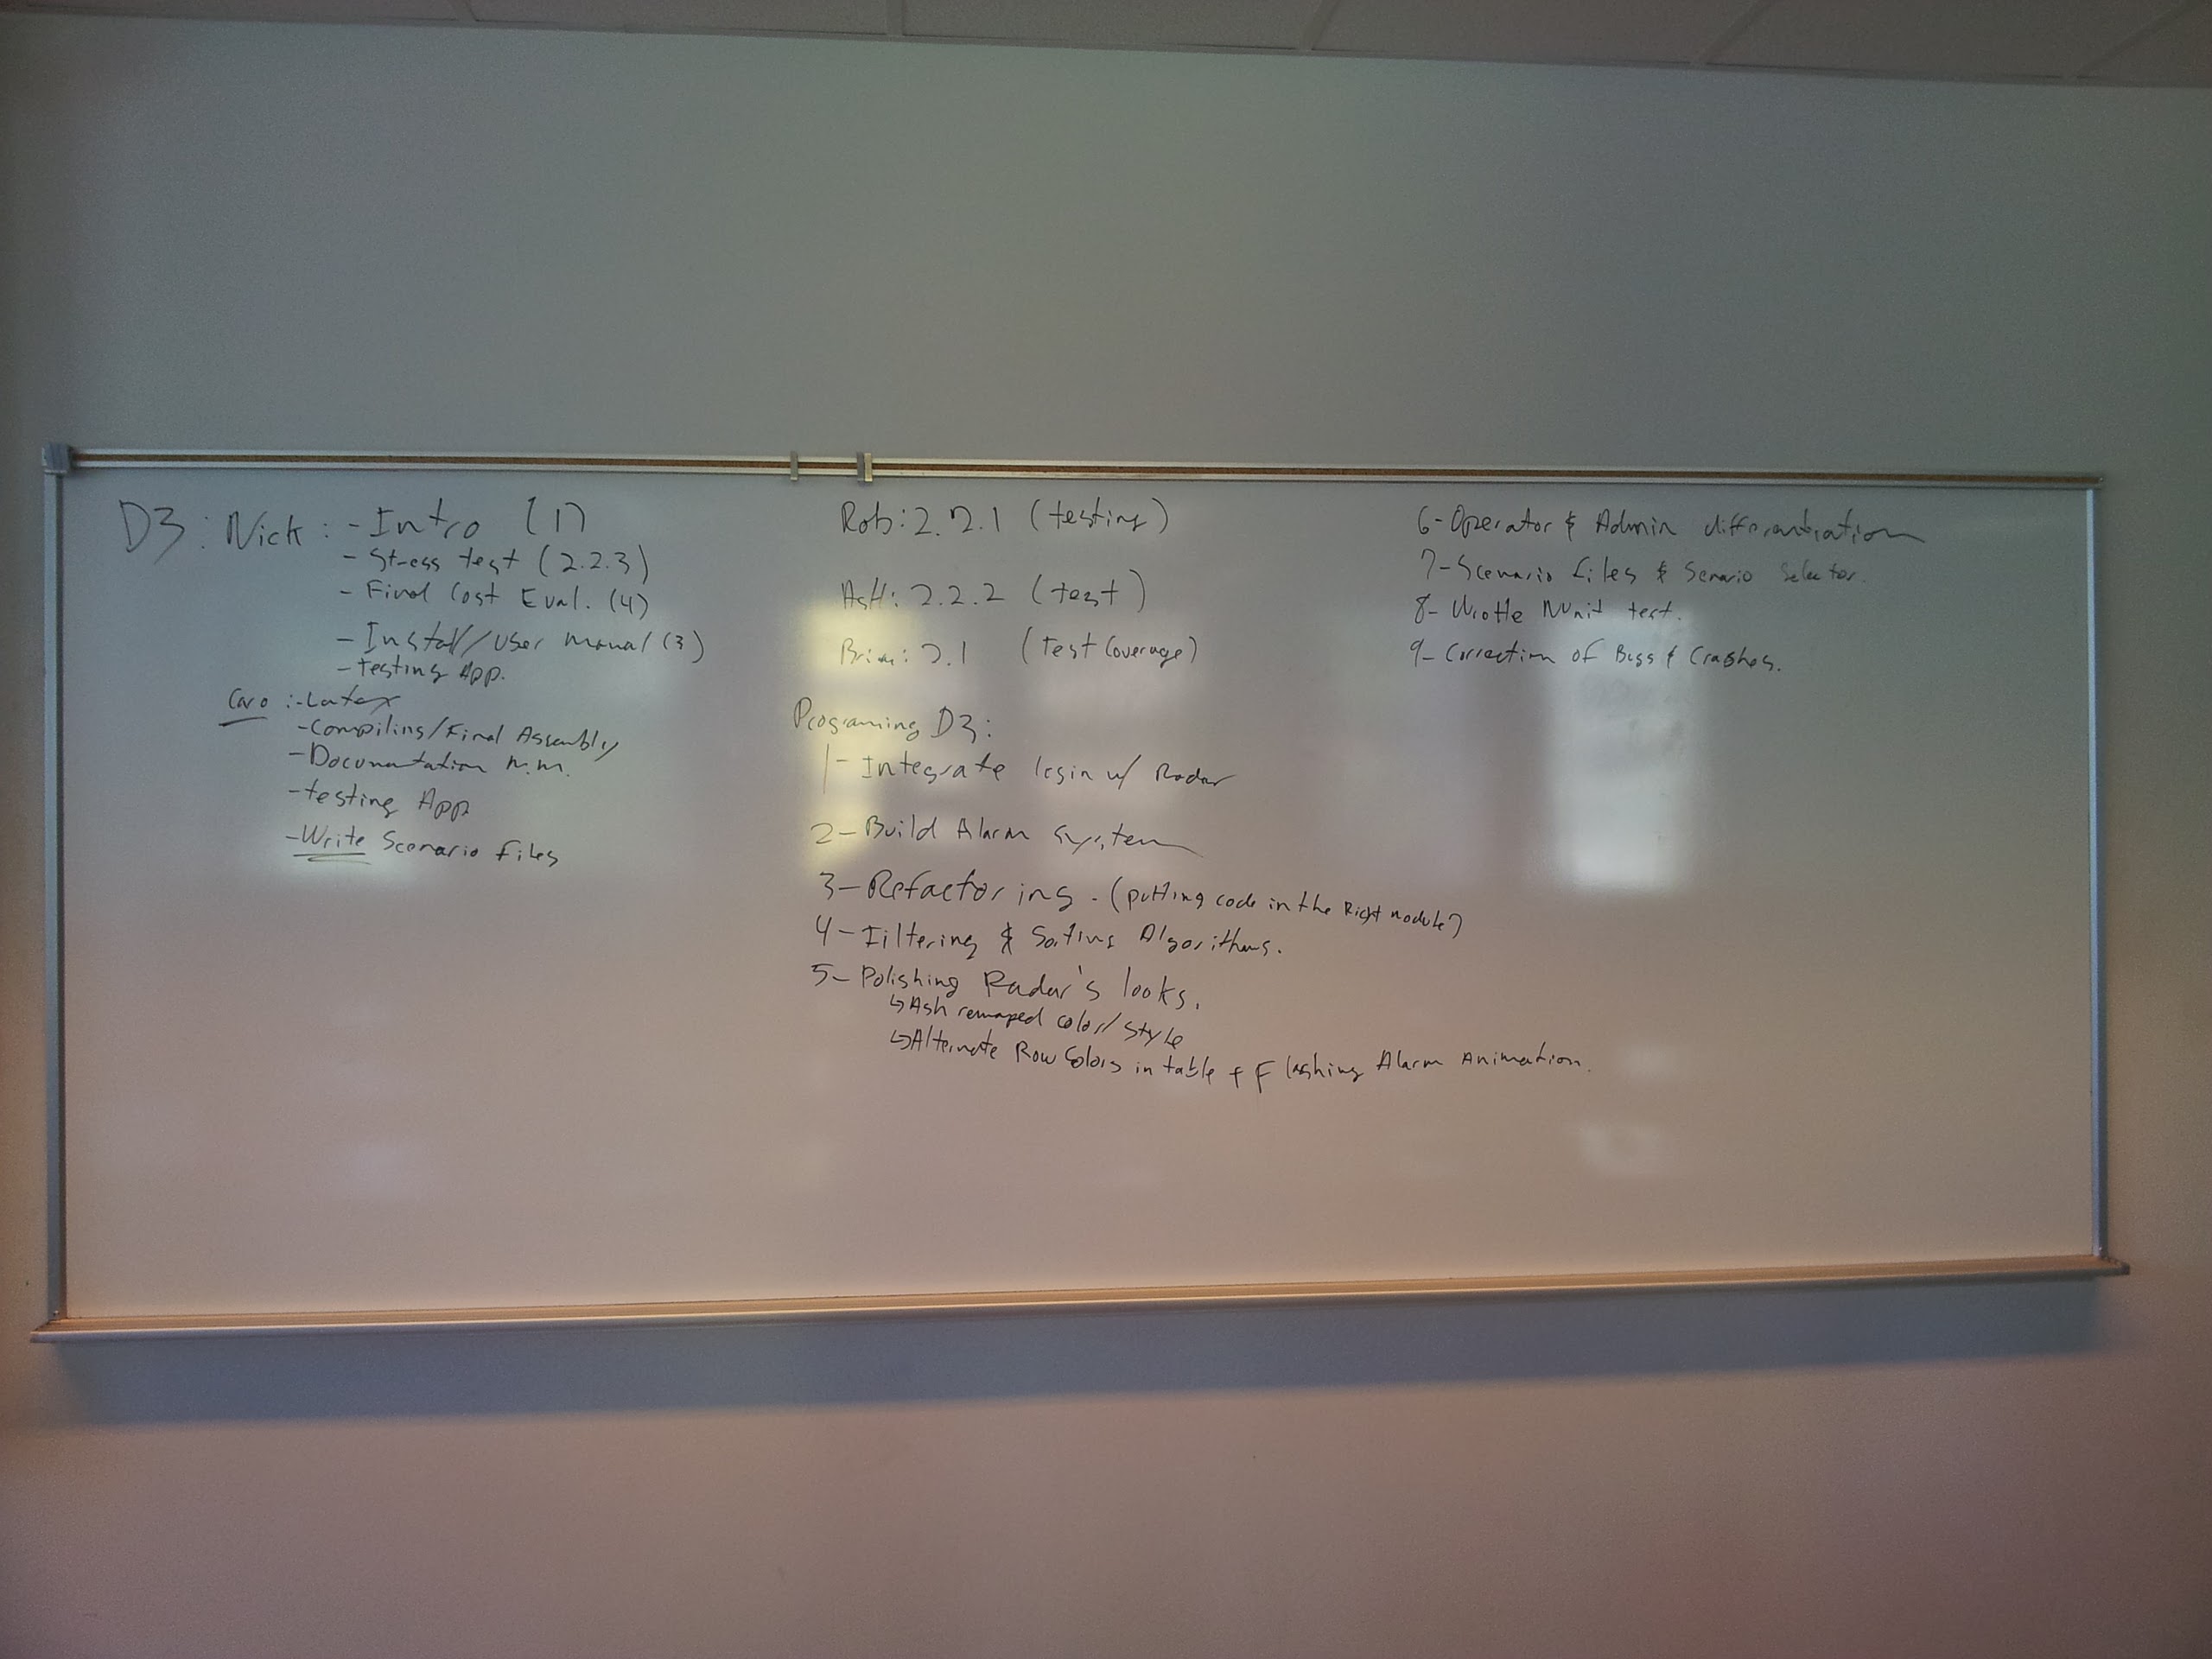 D3: Nick: - Intro (1)
- Stress test (2.2.3)
- Final Cost Eval. (4)
- Install/User manual (3)
- testing App.
Caro :- Latex
- Compiling/Final Assembly
- Documentation
- testing App
- Write Scenario files
Rob: 2.2.1 (testing)
AsH: 2.2.2 (test)
Brian: 2.1 (Test Coverage)
Programing D3:
1- Integrate login w/ Radar
2- Build Alarm system
3- Refactoring. (putting code in the Right module)
4- Filtering & Sorting Algorithms.
5- Polishing Radar's looks.
↳ Ash remaped color/style
↳ Alternate Row Colors in table + Flashing Alarm Animation.
6- Operator & Admin differentiation
7- Scenario files & Senario Selector.
8- Wrotte NUnit test.
9- Correction of Bugs & Crashes.